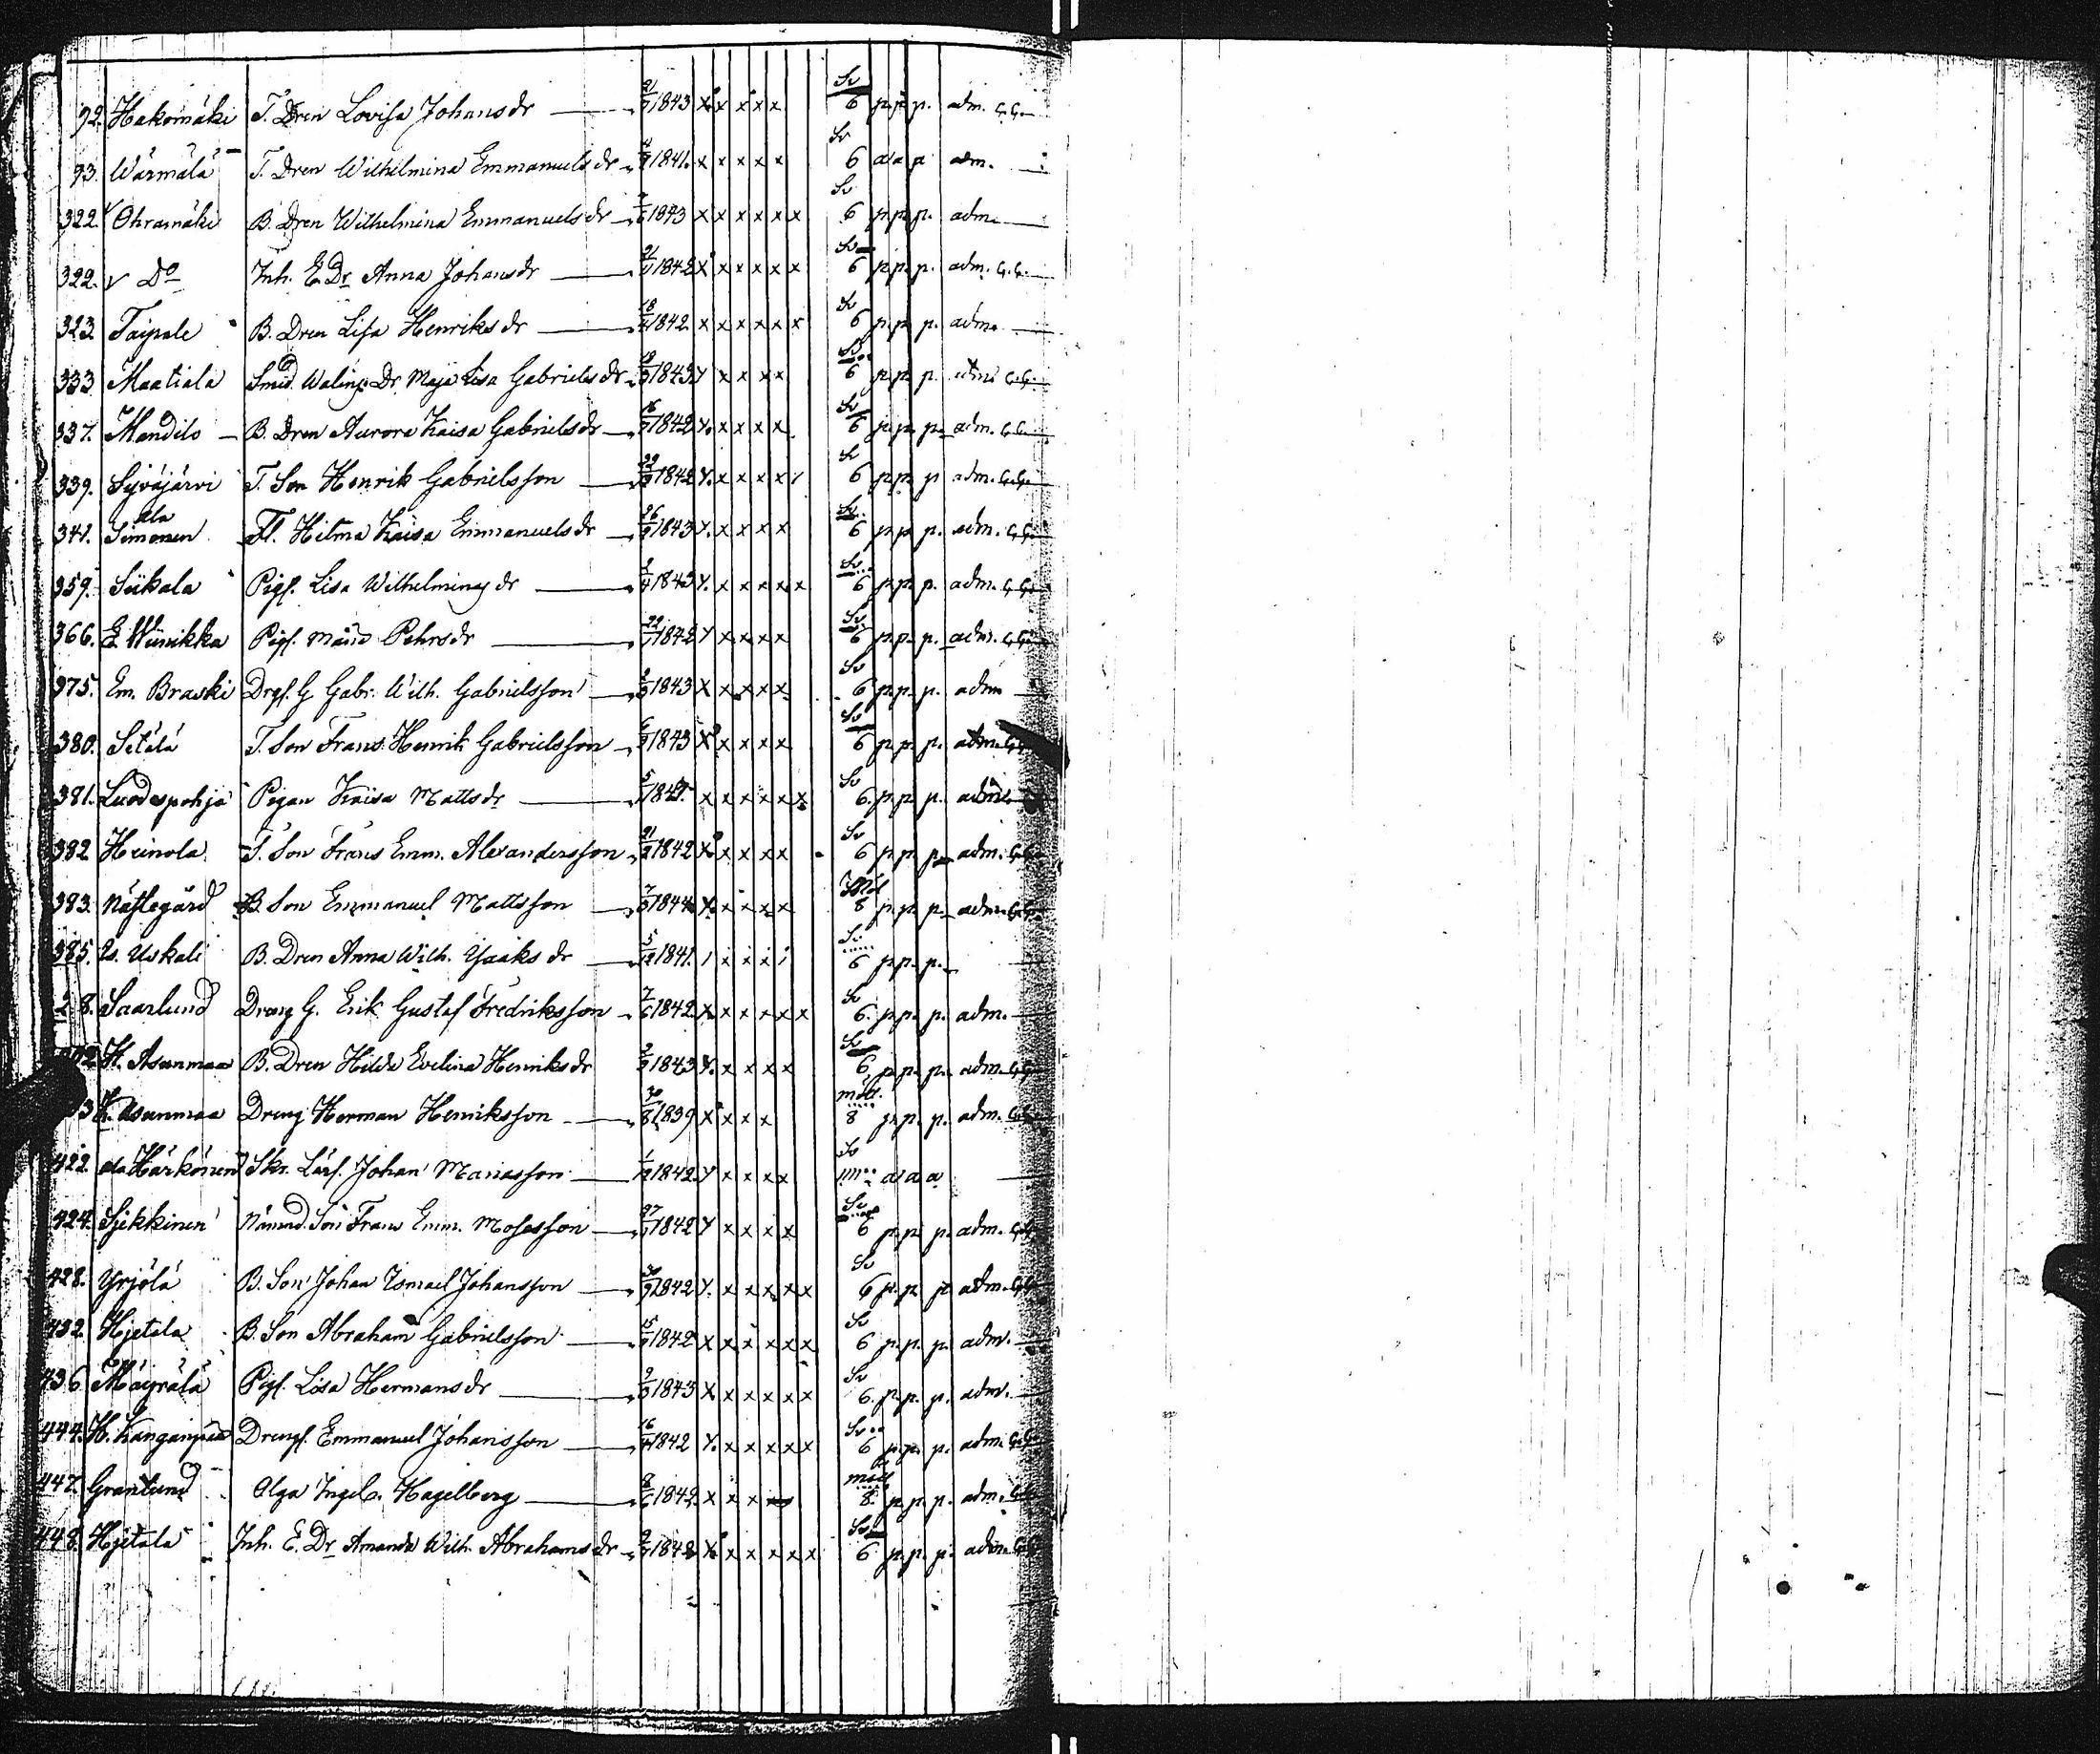 92. Hakomäki T. Dren Lovisa Johansdr 21/7 1843 x x x x x Sv 6 p. p. p. adm. G.G.
93. Wärmälä T. Dren Wilhelmina Emmanuels dr 1841. x x x x x Sv 6 a a a adm.
322. Ohramäki B. Dren Wilhelmina Emmanuels dr 1843 x x x x x x Sv 6 p. p. p. adm.
322. v Do Inh. E. Dr Anna Johansdr 1842 x x x x x x Sv 6 p. p. p. adm. G.G.
323. Taipale B. Dren Lisa Henriks dr 18/4 1842 x x x x x x Sv 6 p. p. p. adm.
333 Maatiala Smid. Walins Dr. Maja Lisa Gabriels dr 1843 x x x x x Sv 6 p. p. p. adm. G.G.
337. Mandilo B. Dren Aurora Kaisa Gabrielsdr 1842 x x x x x Sv 6 p. p. p. adm. G.G.
339. Syväjärvi T. Son Henrik Gabrielsson 1842 x x x x x x Sv 6 p. p. p adm. G.G.
341. ala Simonen Fl. Hilma Kaisa Emmanuels dr 26/9 1843 x x x x x Sv 6 p. p. p. adm. G.G.
359. Siikala Pigf. Lisa Wilhelmins dr 1843 x x x x x x Sv 6 p. p. p. adm. G.G.
366. E. Wiinikka Pigf. Maria Pehrsdr 1842 x x x x x Sv 6 p. p. p. adm. G.G.
375. Em. Braski Drgf. G Gabr. Wilh. Gabrielsson 1843 x x x x x Sv 6 p. p. p. adm
380. Setälä T. Son Frans Henrik Gabrielsson 1843 x x x x x Sv 6 p. p. p. adm. G.G.
381. Luodespohja Pigan Kaisa Mattsdr x x x x x x Sv 6. p. p. p. adm.
382 Heinola T. Son Frans Emm. Alexandersson 1842 x x x x x Sv 6 p. p. p. adm. G.G.
383. Näslegård B. Son Emmanuel Mattsson 1844 x x x x x Mål 8 p. p. p. adm. G.G.
385. Y. Uskali B. Dren Anna Wilh. Isaaks dr 5/12 1841. Sv 6 p. p. p.
28. Saarlund Dreng G. Erik Gustaf Fredriksson 7/6 1842 x x x x x x Sv 6. p. p. p. adm.
H. Asunmaa B. Dren Hilda Evelina Henriksdr 1843 x x x x x Sv 6 p. p. p. adm. G.G.
H. Asunmaa Dreng Herman Henriksson 1839 x x x x mål. 8 p. p. p. adm. G.G.
422. ala Härkönen Skr. Lärf. Johan Mariasson 1/12 1842 x x x x x Sv a a a
424. Sjikkinen Nämnd. Son Frans Emm. Mosesson 27/7 1842 x x x x x Sv 6 p. p. p. adm. G.G.
428. Yrjölä B. Son Johan Ismael Johansson 30/9 1842 x x x x x x Sv 6 p. p. p adm. G.G.
432. Hjetala B. Son Abraham Gabrielsson 1842 x x x x x x Sv 6 p. p. p. adm.
436. Mäyrälä Pigf. Lisa Hermansdr 1843 x x x x x x Sv 6. p. p. p. adm.
444. H. Kanganpää Drengf. Emmanuel Johansson 16/11 1842 x x x x x x Sv 6 p. p. p. adm. G.G.
447. Granlund Olga Ingeb. Hagelberg 8/6 1842 x x x mål 8. p. p. p. adm. G.G.
448. Hjetala Inh. E. Dr Amanda Wilh. Abrahams dr 1842 x x x x x x Sv 6 p. p. p. adm. G.G.